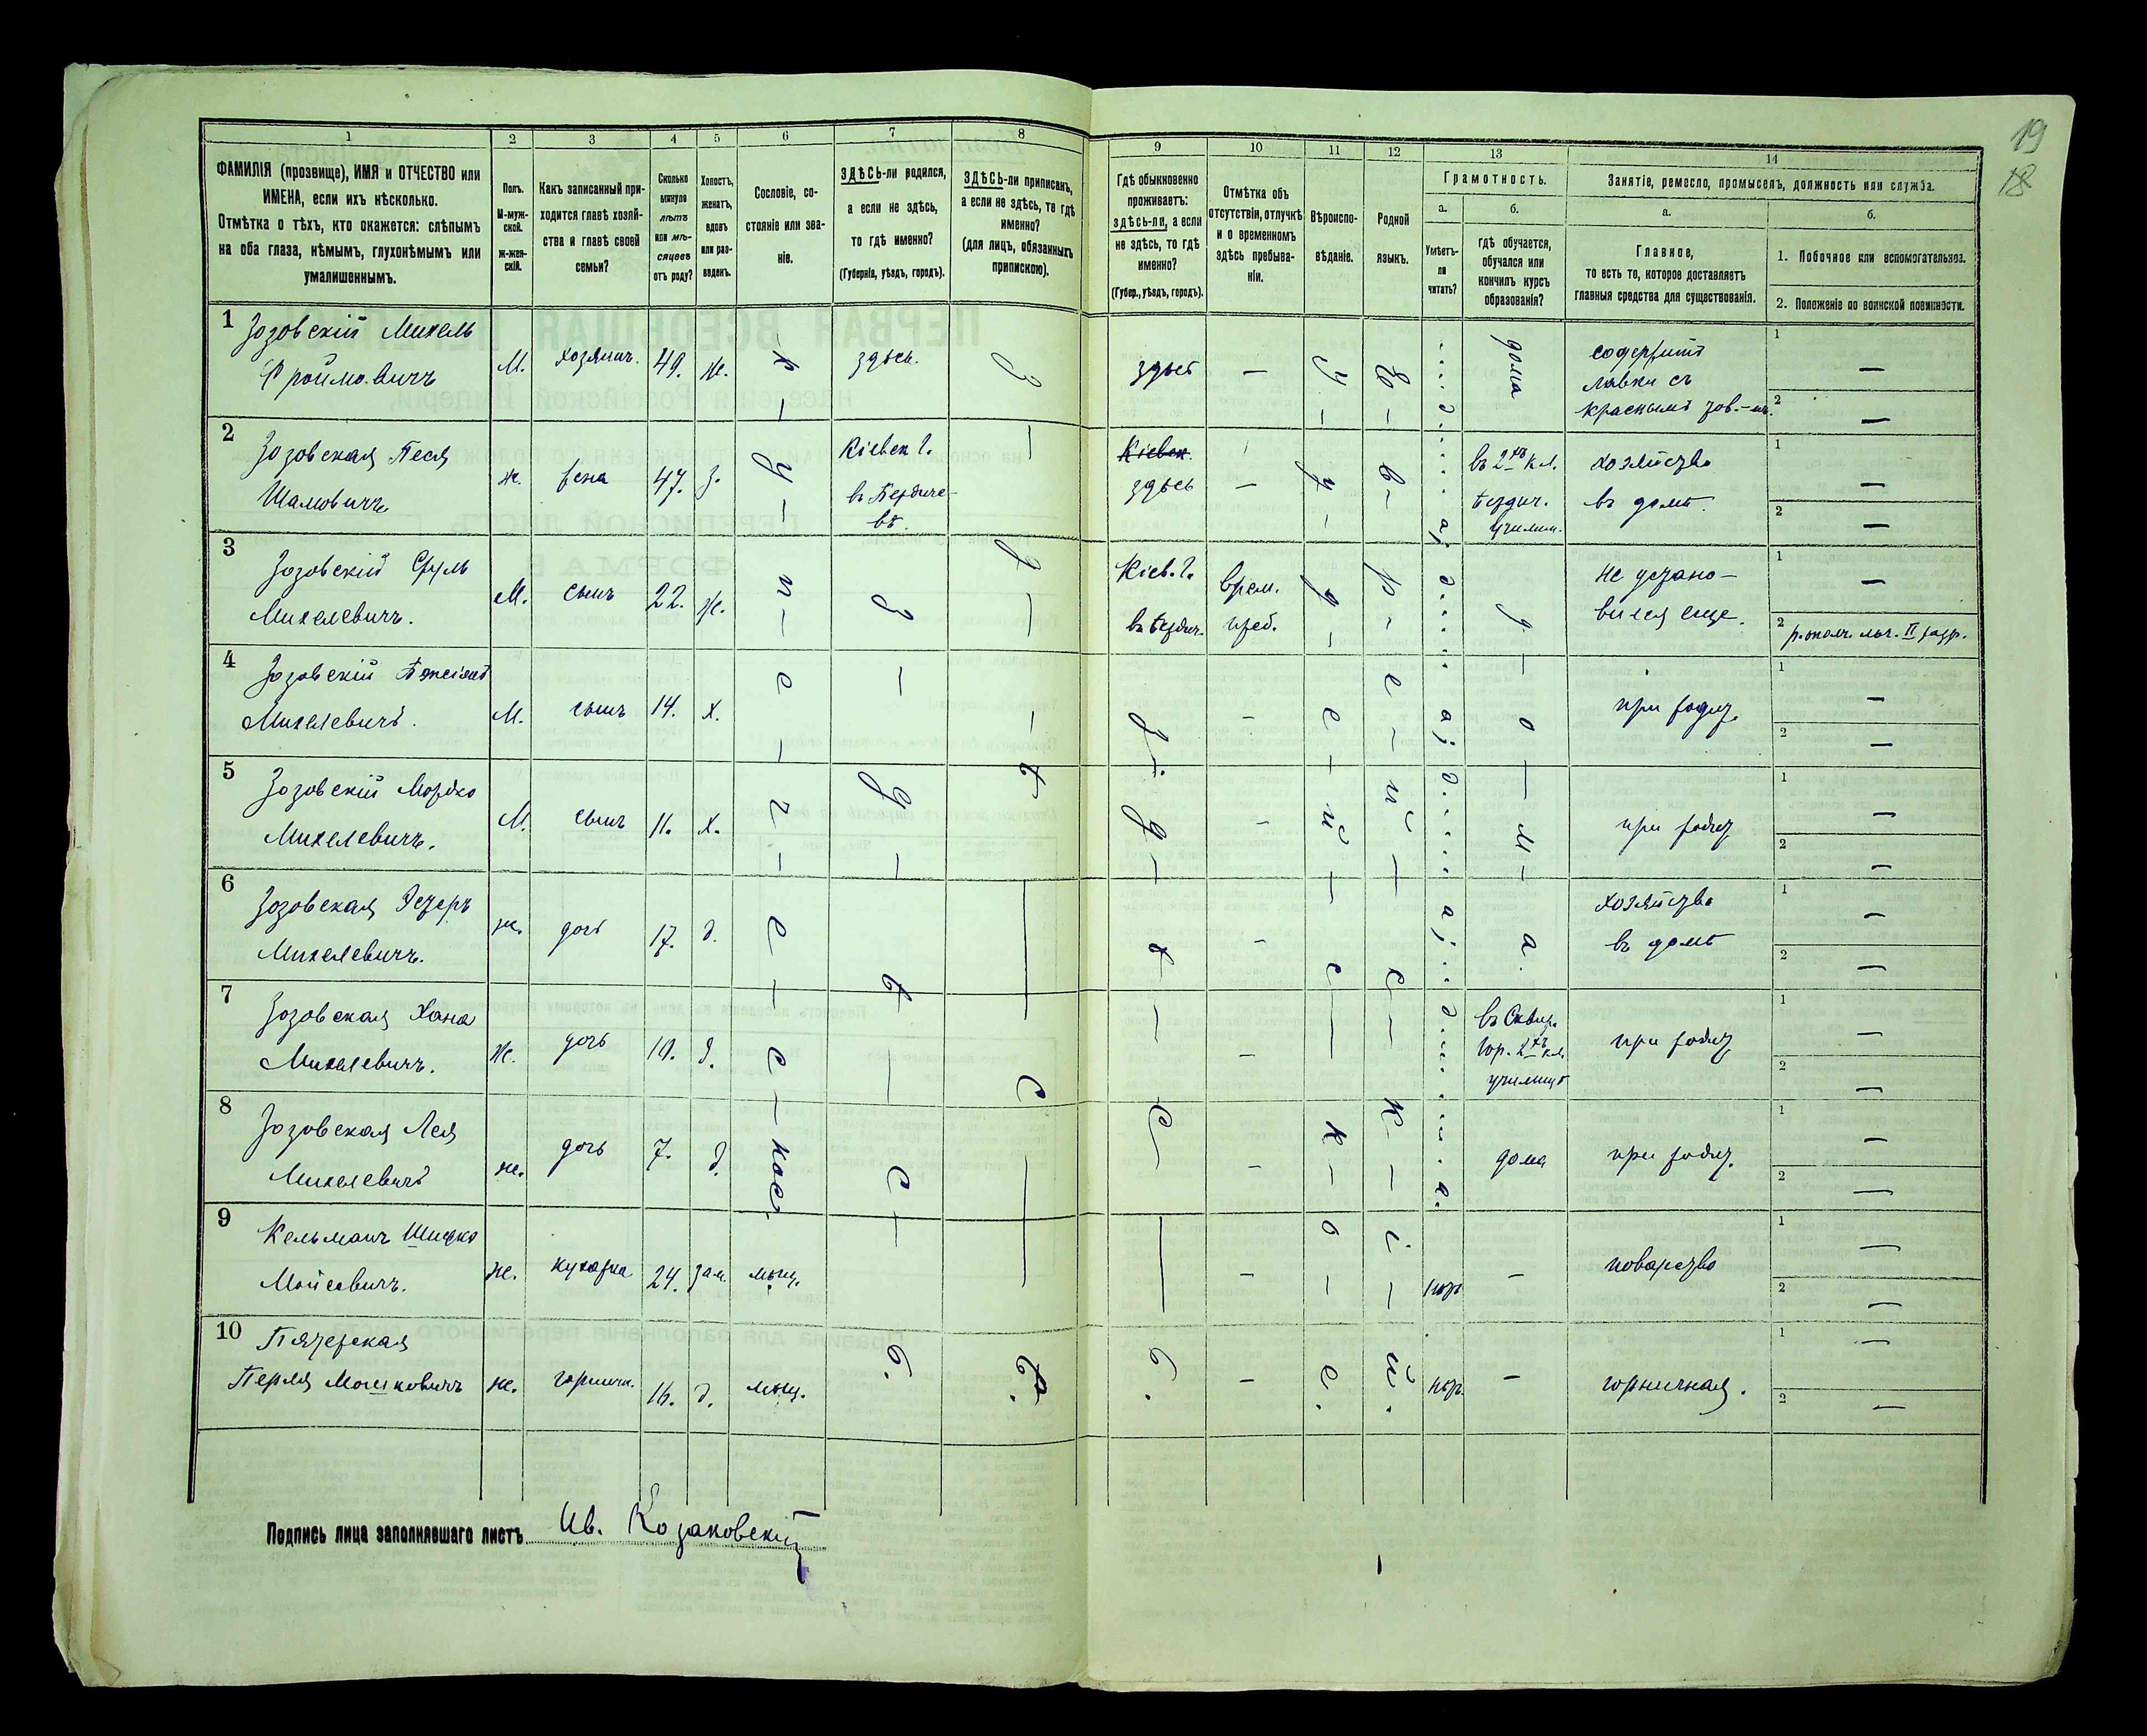 19
18
1
2
3
4
5
6
7
8
9
10
11
12
13
14
ФАМИЛІЯ (прозвище), ИМЯ и ОТЧЕСТВО или
ИМЕНА, если ихъ нѣсколько.
Отмѣтка о тѣхъ, кто окажется: слѣпымъ
на оба глаза, нѣмымъ, глухонѣмымъ или
умалишеннымъ.
Полъ.
М-муж-
ской.
Ж-жен-
скій.
Какъ записанный при-
ходится главѣ хозяй-
ства и главѣ своей
семьи?
Сколько
минуло
лѣтъ
или мѣ-
сяцевъ
отъ роду?
Холостъ,
женатъ,
вдовъ
или раз-
веденъ.
Сословіе, со-
стояніе или зва-
ніе.
ЗДѢСЬ-ли родился,
а если не здѣсь,
то гдѣ именно?
(Губернія, уѣздъ, городъ).
ЗДѢСЬ-ли приписанъ,
а если не здѣсь, то гдѣ
именно?
(для лицъ, обязанныхъ
припискою).
Гдѣ обыкновенно
проживаетъ:
здѣсь-ли, а если
не здѣсь, то гдѣ
именно?
(Губер., уѣздъ, городъ).
Отмѣтка объ
отсутствіи, отлучкѣ
и о временномъ
здѣсь пребыва-
ніи.
Вѣроиспо-
вѣданіе.
Родной
языкъ.
Грамотность.
а.
Умѣетъ-
ли
читать?
б.
гдѣ обучается,
обучался или
кончилъ курсъ
образованія?
Занятіе, ремесло, промыселъ, должность или служба.
а.
Главное,
то есть то, которое доставляетъ
главныя средства для существованія.
б.
1. Побочное или вспомогательное.
2. Положеніе по воинской повинности.
1 Зозовскій Михель
Фроймовичъ
М. хозяинъ. 49. ж. здѣсь.
здѣсь — дома
содержитъ
лавки съ
краснымъ
1 —
2 —
2 Зозовская Песя
Шамовичъ
ж. жена 47. з.
Кіевск г.
въ Бердиче-
вѣ.
Кіевск.
здѣсь —
въ 2хъ кл.
Бердич.
училищ.
хозяйство
въ домѣ.
1 —
2 —
3 Зозовскій Сруль
Михелевичъ.
М. сынъ 22. ж.
Кіев. г.
въ Бердич.
врем.
преб.
не устано-
вился еще.
1 —
2 р. ополч. II разр.
4 Зозовскій
Михелевичъ.
М. сынъ 14. х. — при родит.
1 —
2 —
5 Зозовскій Мордко
Михелевичъ.
М. сынъ 11. х. — при родит
1 —
2 —
6 Зозовская Эстеръ
Михелевичъ.
ж. дочь 17. д. —
хозяйство
въ домѣ
1 —
2 —
7 Зозовская Хана
Михелевичъ.
ж. дочь 10. д. —
въ Сквир.
гор. 2хъ кл.
училищѣ
при родит.
1 —
2 —
8 Зозовская Лея
Михелевичъ
ж. дочь 7. д. — дома при родит.
1 —
2 —
9 Кельманъ Шифка
Мойсевичъ.
ж. кухарка 24. зам. мѣщ. — нѣтъ — поварство
1 —
2 —
10 Пячерская
Перля Мошковичъ
ж. горничн. 16. д. мѣщ. — нѣтъ. — горничная.
1 —
2 —
к — у — п — е — ч — е — с — кос.
з — д — ѣ — с — ь.
з — д — ѣ — с — ь.
з — д — ѣ — с — ь.
і — у — д — е — й — с — к — о — е.
Е — в — р — е — й — с — к — і — й.
д — о — м — а.
д а; д а; д а; д а.
Подпись лица заполнявшаго листъ Ив. Козаковскій